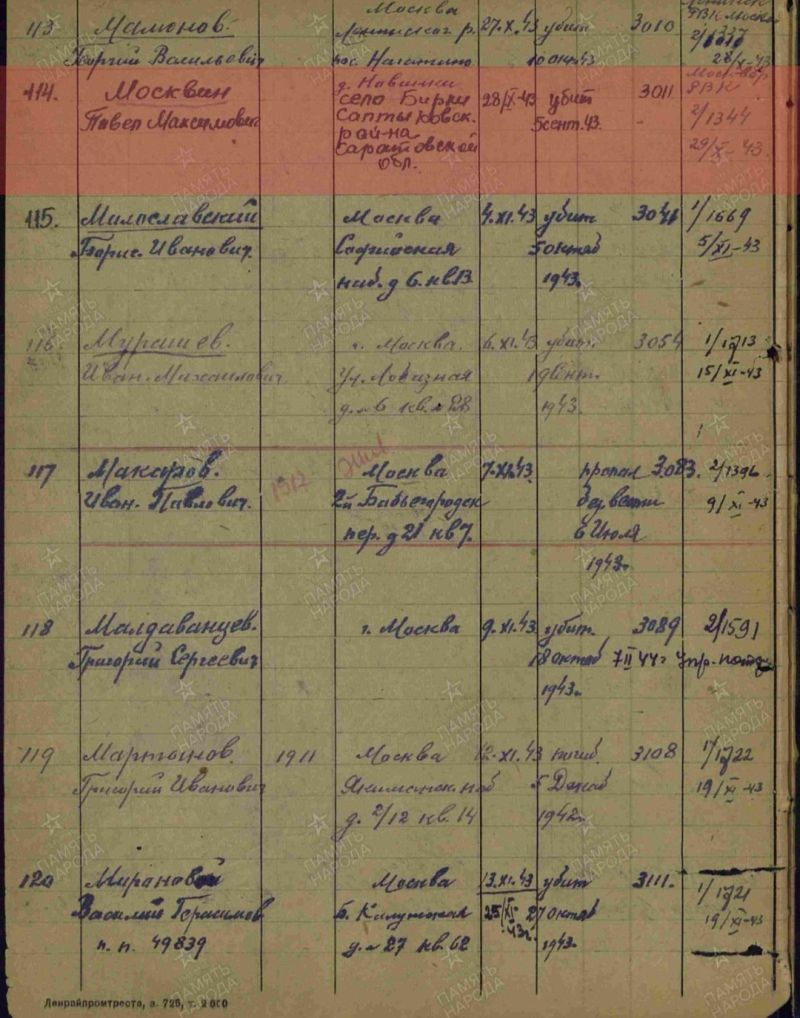 Москва
113 Мамонов. Ленинског р. 27.XI.43 убит 3010
Георгий Васильевич пос. Нагатино 10 окт. 43 28/XI-43
114. Москвин д. Новинки 28/XI-43 убит 3011
Павел Максимович село Бирки 5 сент. 43. 2/1344
Салтыковск. 29/XI-43.
рай-на
Саратовской
обл.
115. Милославский Москва 4.XI.43 убит 3041 1/1669
Борис. Иванович. Софийская 5 октяб 5/XI-43
наб. д 6. кв 13 1943г.
116 Мурашев. г. Москва. 6.XI.43 убит. 3054
Иван. Михаилович Ул. Лобазная 15/XI-43
1943.
117 Макаров. 1912 Москва 7.XI.43. пропал 3083. 2/1396
Иван. Павлович. 2й Бабьегородск без вести 9/XI-43
пер. д 21 кв 7. в Июля
1943г.
118 Малдаванцев. г. Москва 9.XI.43. убит. 3089 2/1591
Григорий Сергеевич 18 октяб 7 II 44г
1943г.
119 Мартынов. 1911 Москва 12.XI.43 погиб. 3108
Григорий Иванович Якиманск. наб 5 Декаб 19/XI-43
д. 2/12 кв. 14 1942г.
120 Миронов Москва 13.XI.43 убит 3111.
Василий Герасимов Б. Калужская 25/XI-43г. 27 октяб 19/XI-43
п. п. 49839 д. 27 кв. 62 1943г.
Ленрайпромтреста, з. 725, т. 2 500
ПАМЯТЬ
НАРОДА